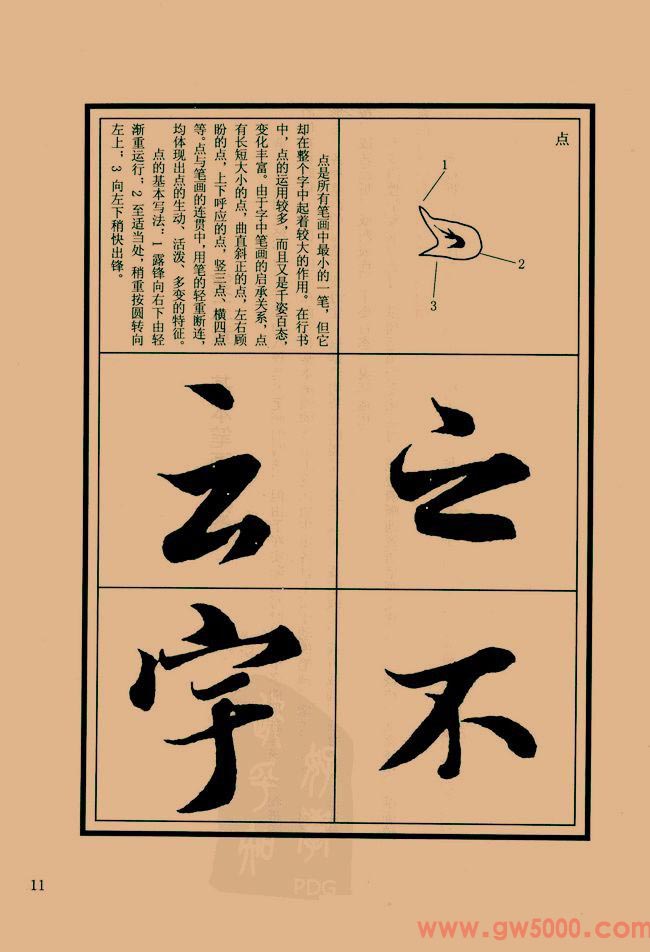 点
1
2
3
点是所有笔画中最小的一笔，但它
却在整个字中起着较大的作用。在行书
中，点的运用较多，而且又是千姿百态，
变化丰富。由于字中笔画的启承关系，点
有长短大小的点，曲直斜正的点，左右顾
盼的点，上下呼应的点，竖三点、横四点
等。点与笔画的连贯中，用笔的轻重断连，
均体现出点的生动、活泼、多变的特征。
点的基本写法：1 露锋向右下由轻
渐重运行；2 至适当处，稍重按圆转向
左上；3 向左下稍快出锋。
之
云
不
宇
PDG
11
www.gw5000.com